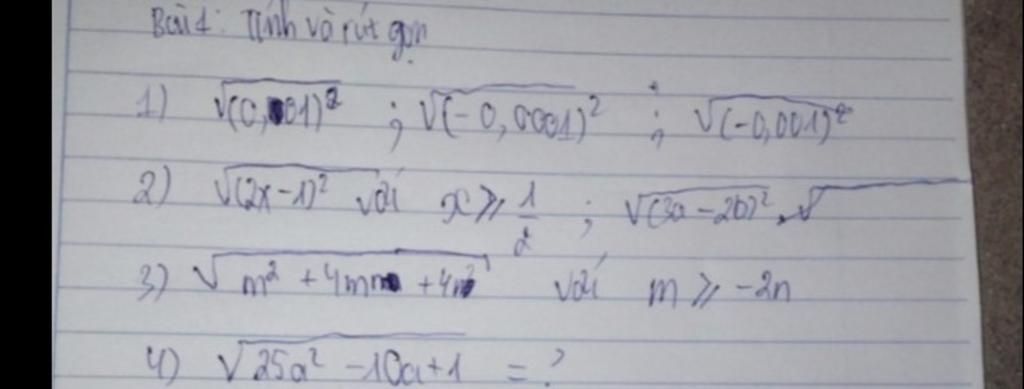 Bài 1: Tính và rút gọn
1) √(0,001)² ; √(-0,0001)² ; √(-0,001)²
2) √(2x-1)² với x ⩾ 1/2 ; √(3a-2b)², √
3) √m² + 4mn + 4n² với m ⩾ -2n
4) √25a² - 10a+1 = ?